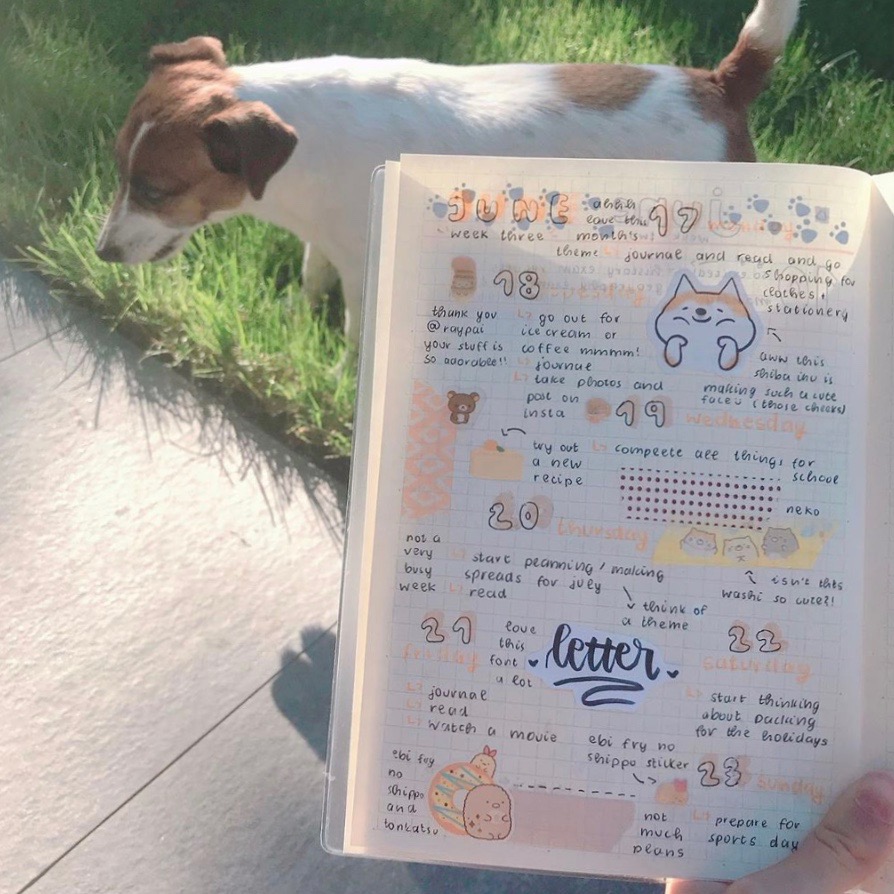 JUNE
week three
ahhh
love this
month's
theme
17
monday
journal and read and go
shopping for
clothes +
stationery
18
thank you
@raypai
your stuff is
so adorable!!
go out for
ice cream or
coffee mmmm!
journal
take photos and
post on
insta
aww this
shiba inu is
making such a cute
face (those cheeks)
19 wednesday
try out
a new
recipe
complete all things for
school
neko
20 thursday
isn't this
washi so cute?!
not a
very
busy
week
start planning / making
spreads for july
read
think of
a theme
21
friday
love
this
font
a lot
letter
22
saturday
journal
read
watch a movie
start thinking
about packing
for the holidays
ebi fry no
shippo sticker
23 sunday
ebi fry
no
shippo
and
tonkatsu
not
much
plans
prepare for
sports day